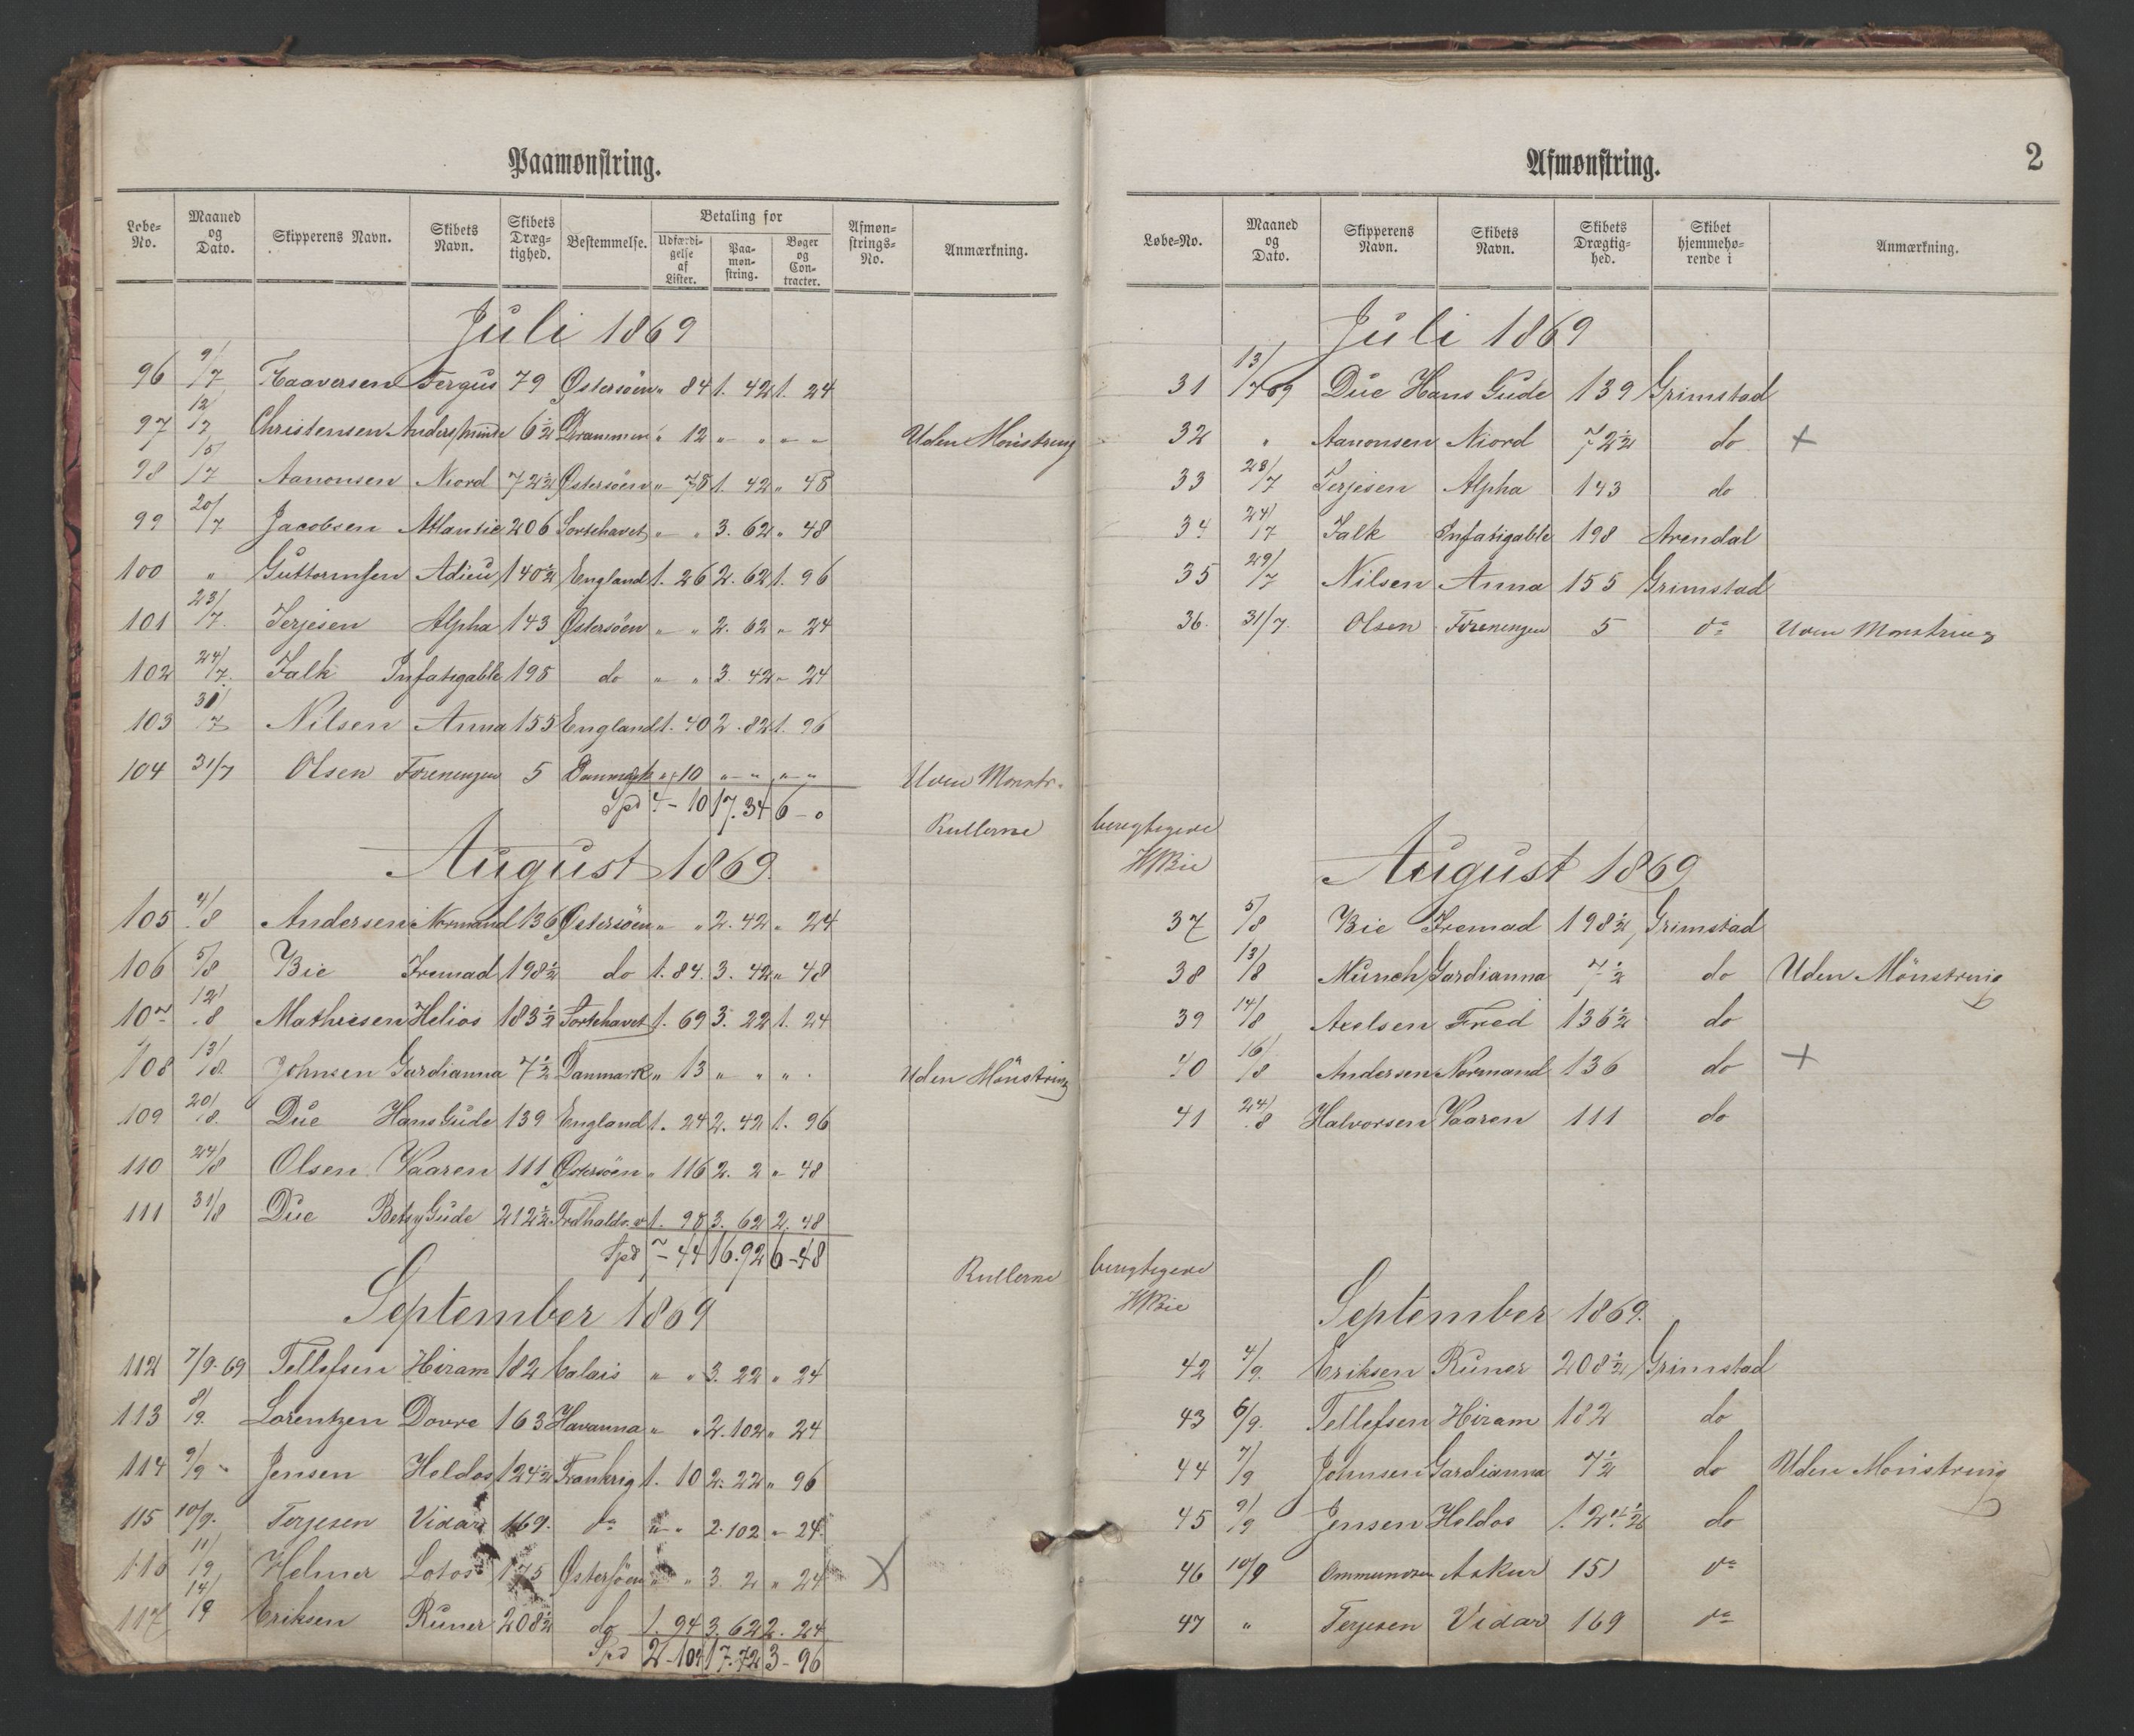 Paamønstring.
Løbe-No. Maaned og Dato. Skipperens Navn. Skibets Navn. Skibets Dræg-tighed. Bestemmelse. Betaling for Udfærdi-gelse af Lister. Paa-møn-string. Bøger og Con-tracter. Afmøn-strings-No. Anmærkning.
Juli 1869
96 9/7 Haaversen Fergus 79 Østersöen " 84 1. 42 1. 24
97 12/7 Christensen Anders minde 6½ Drammen " 12 " " " " Uden Mönstring
98 15/7 Aanonsen Niord 72½ Østersöen " 78 1. 42 " 48
99 20/7 Jacobsen Atlantic 206 Sortehavet " " 3. 62 " 48
100 " Guttormsen Adieu 140½ England 1. 26 2. 62 1. 96
101 23/7 Terjesen Alpha 143 Østersöen " " 2. 62 " 24
102 24/7 Falk Infatigable 198 do " " 3. 42 " 24
103 31/7 Nilsen Anna 155 England 1. 40 2. 82 1. 96
104 31/7 Olsen Foreningen 5 Danmark " 10 " " " " Uden Monstr.
Spd 4 - 10 17. 34 6 - 0
Rullerne
August 1869
105 4/8 Andersen Normand 136 Østersöen " " 2. 42 " 24
106 5/8 Bie Fremad 198½ do 1. 84. 3. 42 " 48
107 12/8 Mathiesen Helios 183½ Sortehavet 1. 69 3. 22 1. 24
108 13/8 Johnsen Gardianna 7½ Danmark " 13 " " " . Uden Mönstring
109 20/8 Due Hans Gude 139 England 1. 24 2. 42 1. 96
110 24/8 Olsen Vaaren 111 Østersöen " 116 2. 2 " 48
111 31/8 Due Betsy Gude 212½ Frdhald 1. 98 3. 62 2. 48
Spd 7 - 44 16. 92 6 - 48
Rullerne
September 1869
112 7/9. 69 Tellefsen Hiram 182 Calais " " 3. 22 " 24
113 8/9. Lorentzen Dovre 163 Havanna " " 2. 102 " 24
114 9/9 Jensen Heldos 124½ Frankrig 1. 10 2. 22 " 96
115 10/9. Terjesen Vidar 169. do " " 2. 102 " 24.
116 11/9 Helmer Lotos 175 Østersöen " " 3. 2 " 24 X
117 14/9 Eriksen Runer 208½ do 1. 94 3. 62 2. 24
Spd 2 - 104 17. 72 3 - 96
Afmønstring. 2
Løbe-No. Maaned og Dato. Skipperens Navn. Skibets Navn. Skibets Drægtig-hed. Skibet hjemmehø-rende i Anmærkning.
Juli 1869
31 13/7 69 Due Hans Gude 139 Grimstad
32 " Aanonsen Niord 72½ do +
33 23/7 Terjesen Alpha 143 do
34 24/7 Falk Infatigable 198 Arendal
35 29/7 Nilsen Anna 155 Grimstad
36. 31/7. Olsen Foreningen 5 do Uden Monstring
berigtigede
HBie
August 1869
37 5/8 Bie Fremad 198½ Grimstad
38 13/8 Munch Gardianna 7½ do Uden Mönstring
39 14/8 Axelsen Fred 136½ do
40 16/8 Andersen Normand 136 do +
41 24/8 Halvorsen Vaaren 111 do
berigtigede
HBie
September 1869.
42 4/9. Eriksen Runer 208½ Grimstad
43 6/9. Tellefsen Hiram 182 do
44 7/9 Johnsen Gardianna 7½ do Uden Mönstring
45 9/9 Jensen Heldos 124½ do
46 10/9 Ommundsen Askur 151 do
47 " Terjesen Vidar 169 do